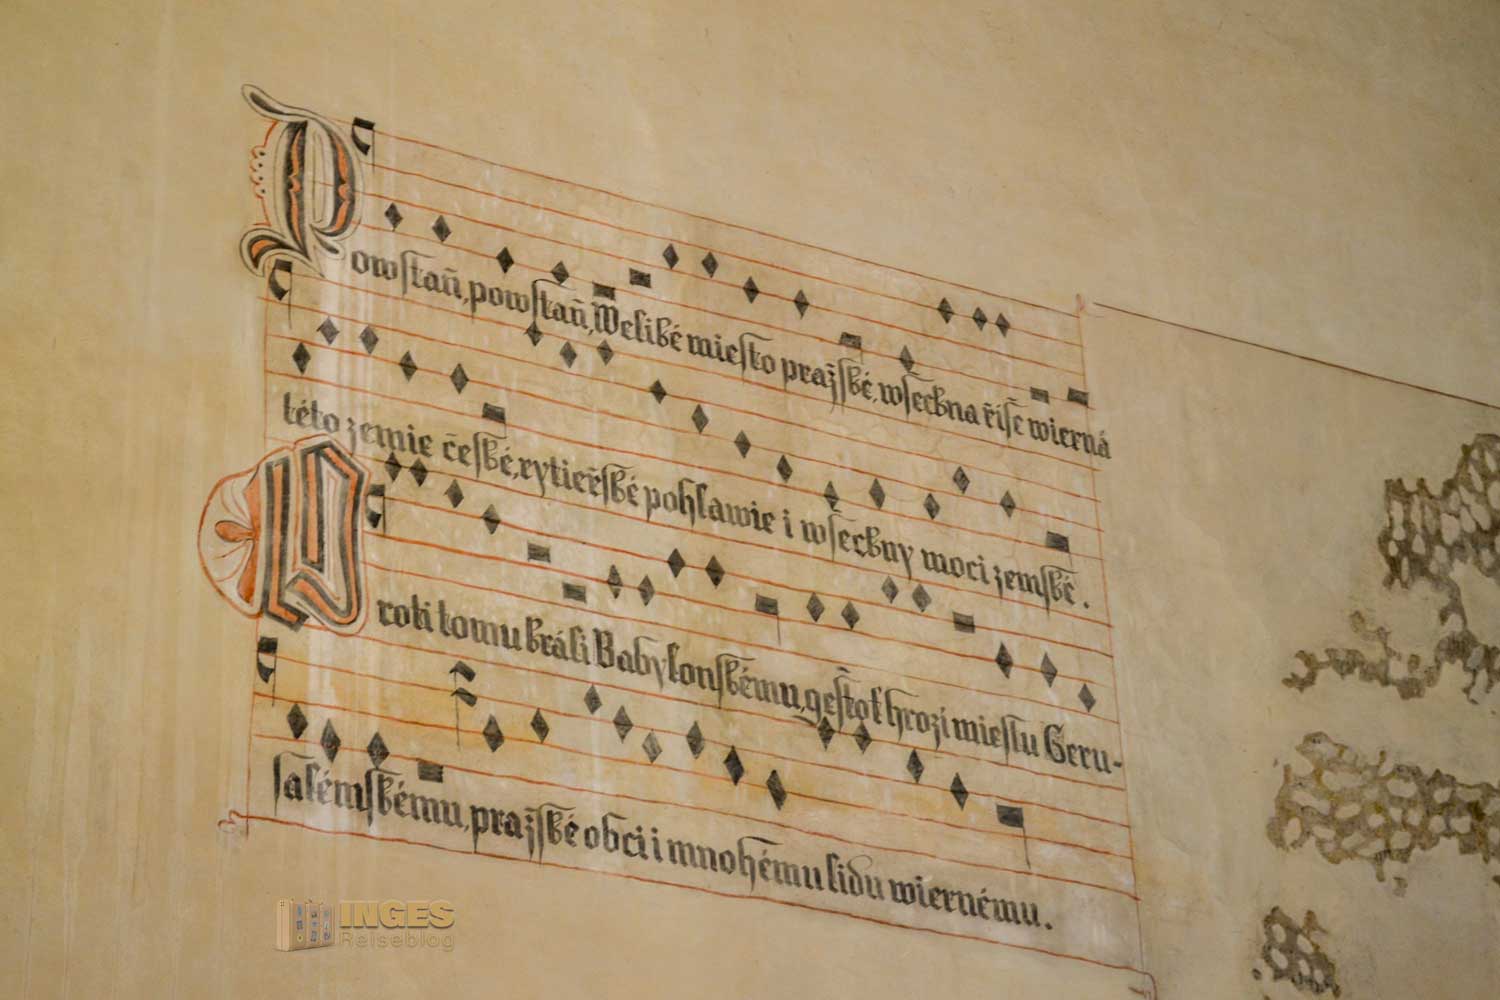 Powſtaň, powſtaň, Weliké mieſto pražſké, wſſečkna řiſſe wierná
této zemie čeſké, rytieřſké pohlawie i wſſečkny moci zemſké.
Proti tomu králi Babylonſkému, geſſtoť hrozí mieſtu Geru-
ſalémſkému, pražſké obci i mnohému lidu wiernému.
INGES
Reiseblog